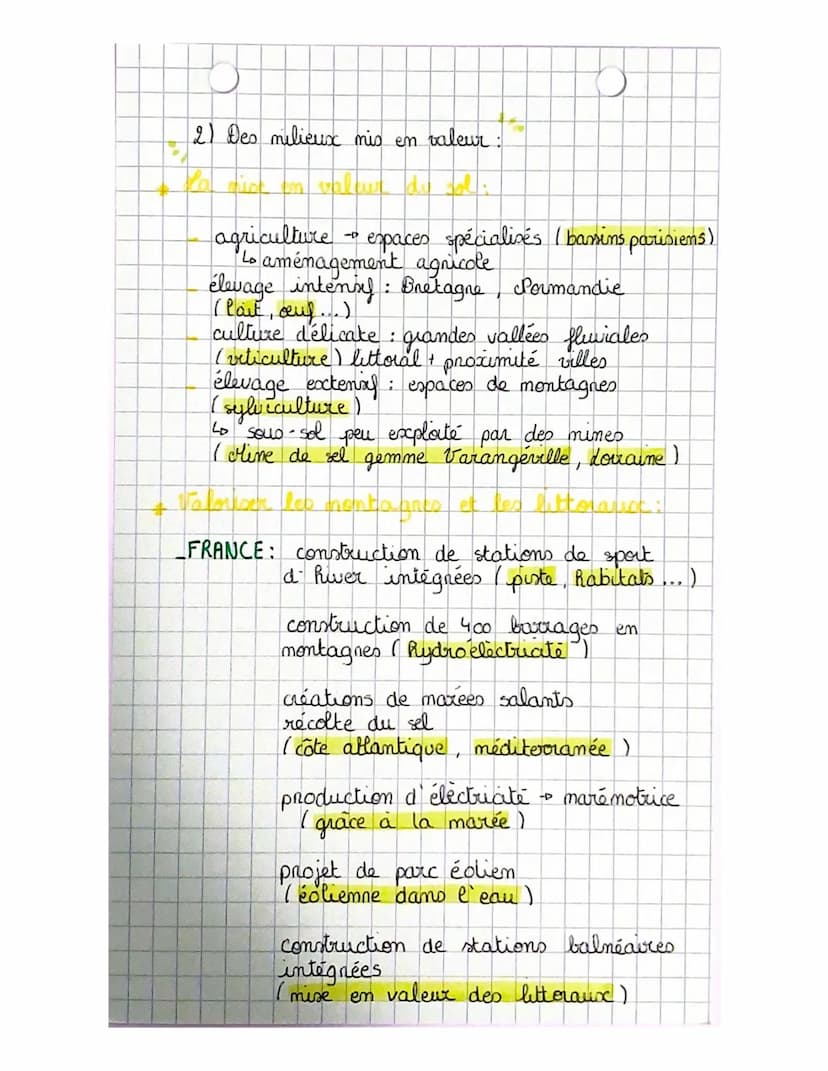 2) Des milieux mis en valeur :
La mise en valeur du sol :
- agriculture → espaces spécialisés (bassins parisiens)
↳ aménagement agricole
- élevage intensif : Bretagne, Normandie
(lait, œuf...)
- culture délicate : grandes vallées fluviales
(viticulture) littoral + proximité villes
- élevage extensif : espaces de montagnes
(sylviculture)
↳ sous-sol peu exploité par des mines
(Mine de sel gemme Varangéville, Lorraine)
Valoriser les montagnes et les littoraux :
_FRANCE : construction de stations de sport
d'hiver intégrées (piste, habitats...)
construction de 400 barrages en
montagnes (hydroélèctricité)
créations de marées salants
récolte du sel
(côte atlantique, méditerranée)
production d'élèctricité → marémotrice
(grâce à la marée)
projet de parc éolien
(éolienne dans l'eau)
construction de stations balnéaires
intégrées
(mise en valeur des litteraux)